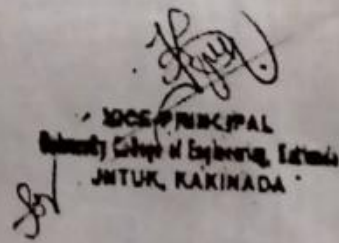 VICE-PRINCIPAL
University College of Engineering, Kakinada
JNTUK, KAKINADA